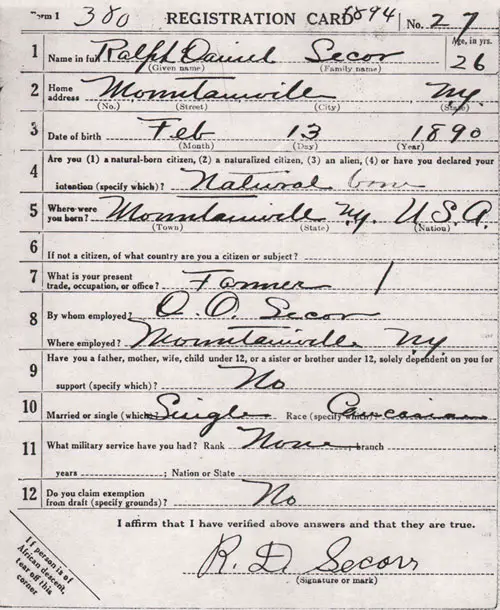 Form 1 380 REGISTRATION CARD 1894 No. 27
1 Name in full Ralph Daniel Secor Age, in yrs. 26
(Given name) (Family name)
2 Home address Mountainville N.Y.
(No.) (Street) (City) (State)
3 Date of birth Feb 13 1890
(Month) (Day) (Year)
4 Are you (1) a natural-born citizen, (2) a naturalized citizen, (3) an alien, (4) or have you declared your
intention (specify which)? Natural born
5 Where were you born? Mountainville N.Y. U.S.A.
(Town) (State) (Nation)
6 If not a citizen, of what country are you a citizen or subject?
7 What is your present trade, occupation, or office? Farmer
8 By whom employed? O. O. Secor
Where employed? Mountainville N.Y.
9 Have you a father, mother, wife, child under 12, or a sister or brother under 12, solely dependent on you for
support (specify which)? No
10 Married or single (which)? Single Race (specify which)? Caucasian
11 What military service have you had? Rank None branch ;
years ; Nation or State
12 Do you claim exemption from draft (specify grounds)? No
I affirm that I have verified above answers and that they are true.
R. D. Secor
(Signature or mark)
If person is of
African descent,
tear off this
corner.